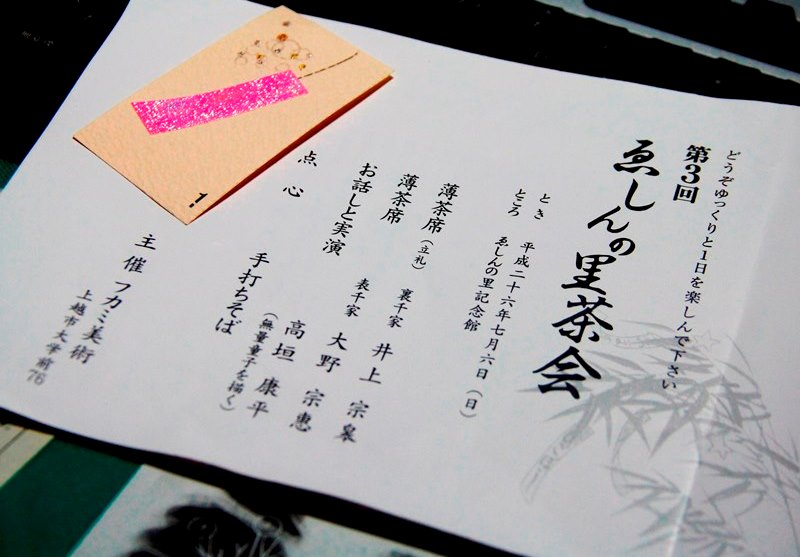 どうぞゆっくりと1日を楽しんで下さい
第3回
ゑしんの里茶会
とき 平成二十六年七月六日(日)
ところ ゑしんの里記念館
薄茶席(立礼) 裏千家 井上 宗泉
薄茶席 表千家 大野 宗惠
お話しと実演 高垣 康平
(無量童子を描く)
点心 手打ちそば
主催 フカミ美術
上越市大学前76
1